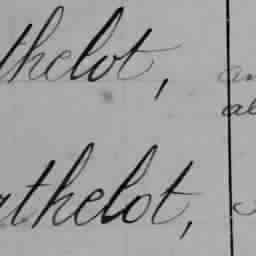 thelot,
rthelot,